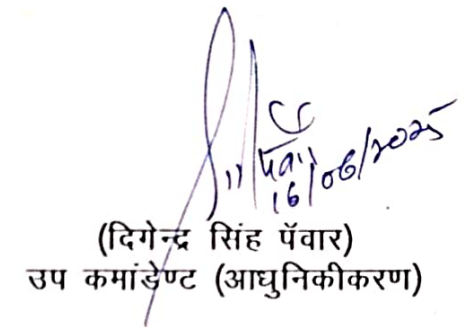 16/06/2025
(दिगेन्द्र सिंह पॅवार)
उप कमांडेण्ट (आधुनिकीकरण)